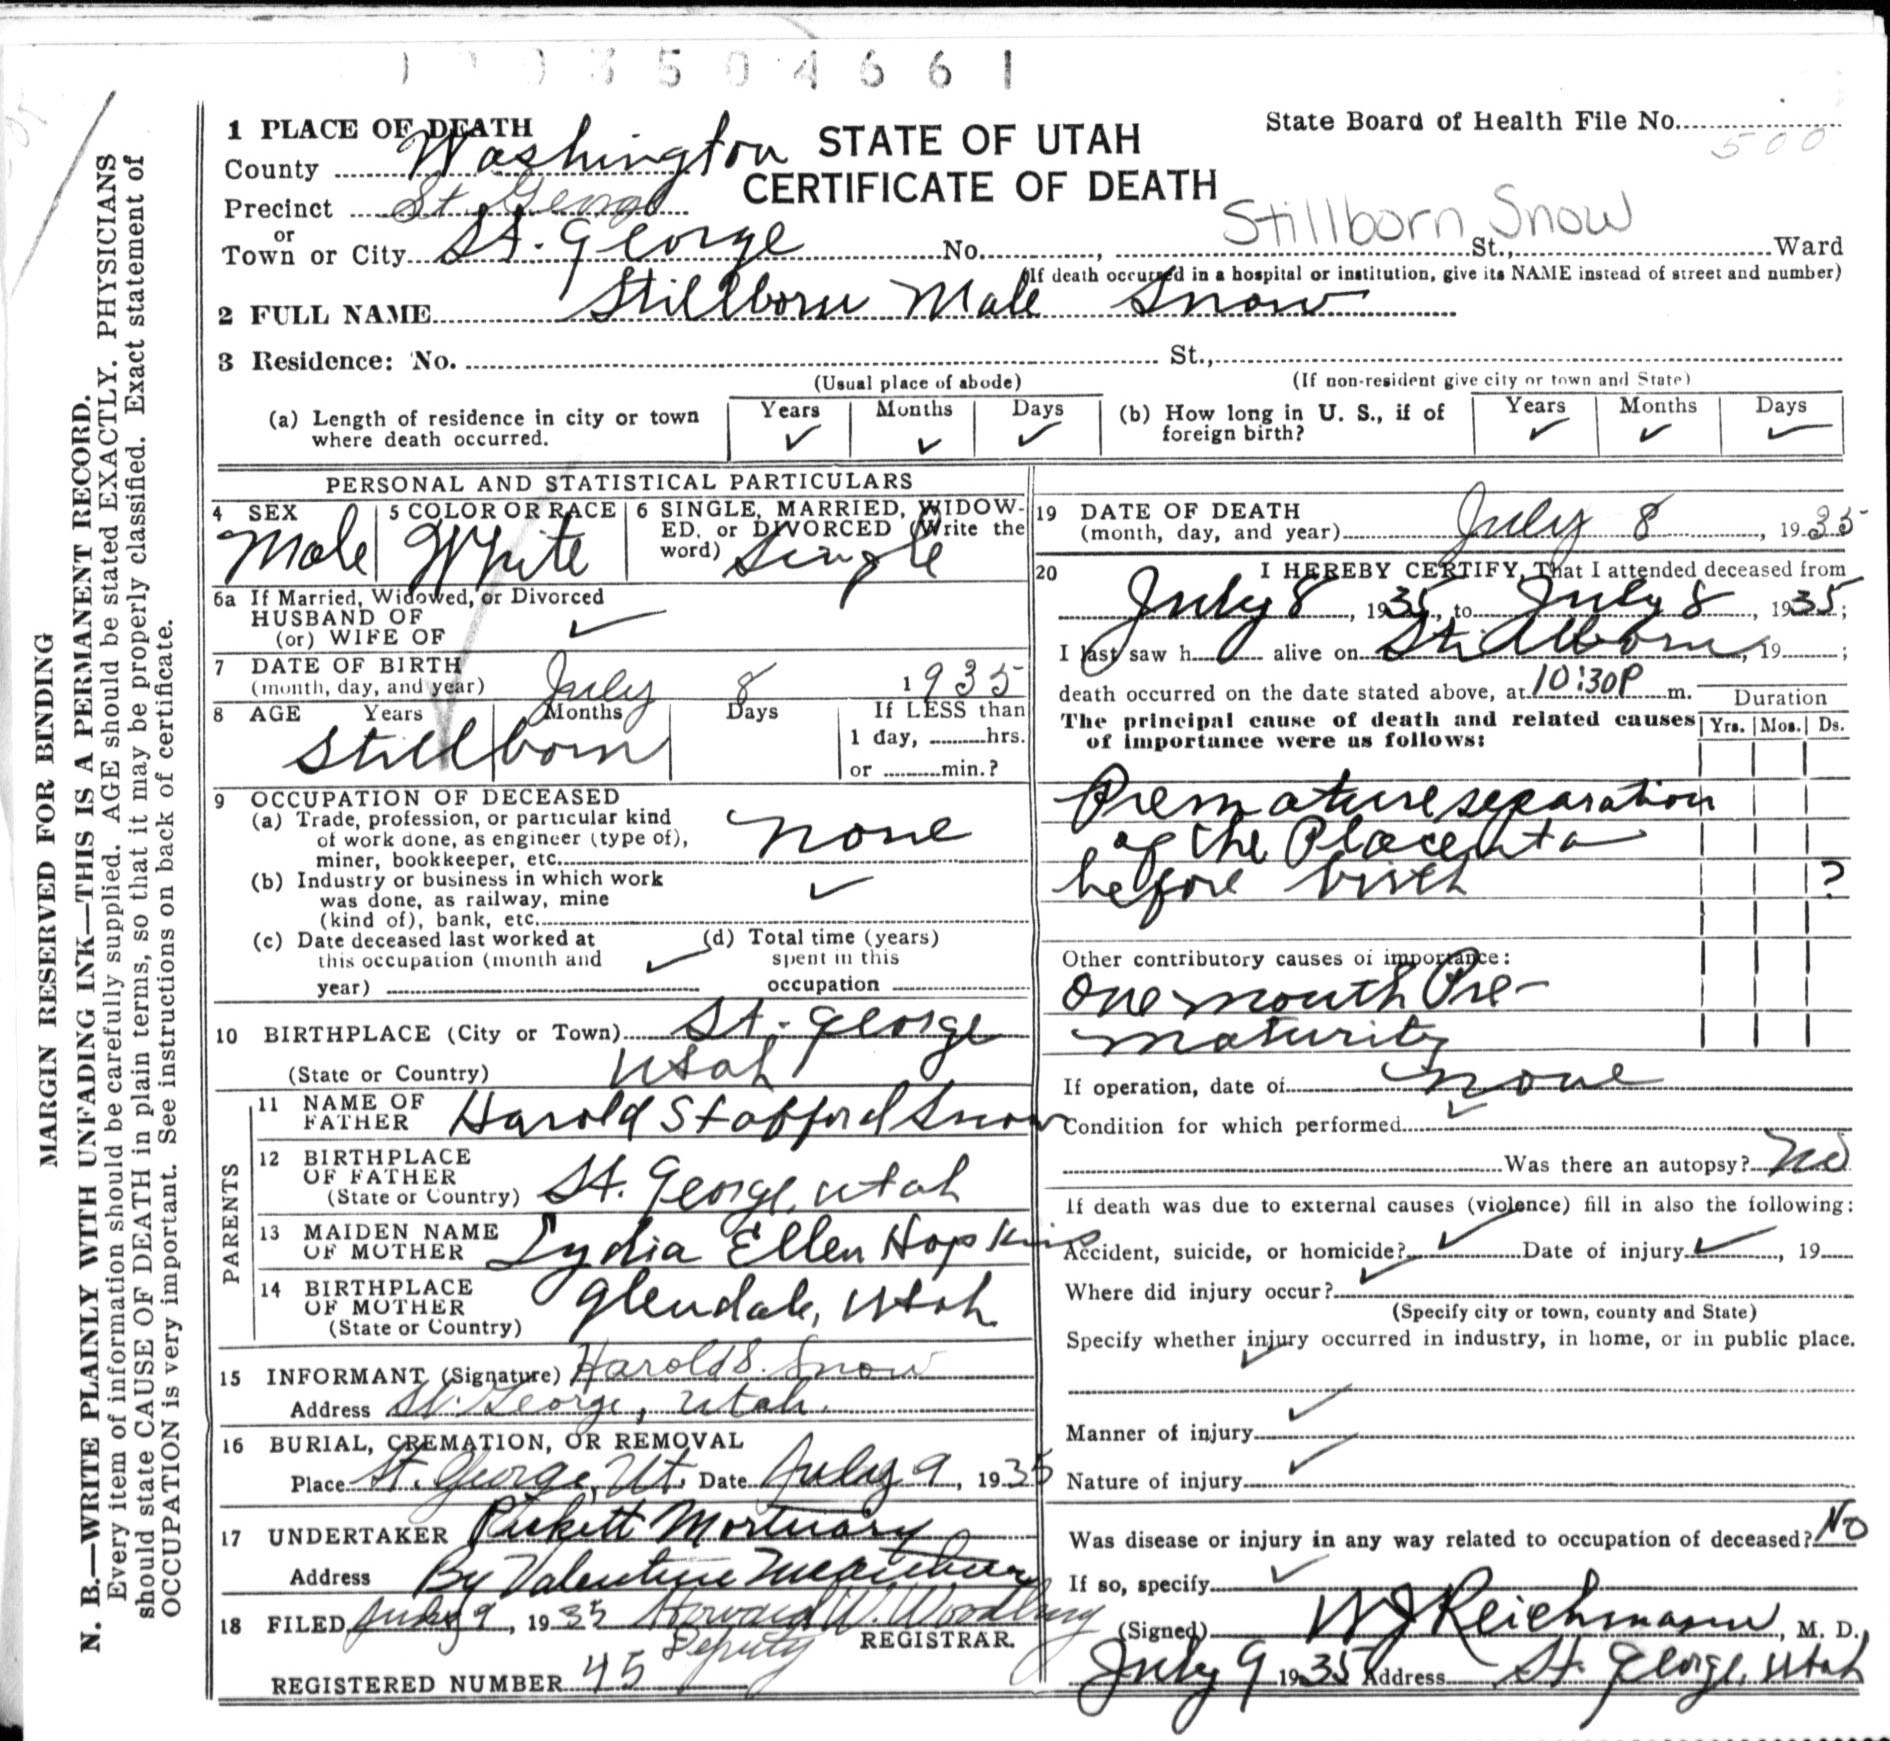 3504661
1 PLACE OF DEATH
STATE OF UTAH
CERTIFICATE OF DEATH
State Board of Health File No.
500
County Washington
Precinct St. George
or
Town or City St. George No. , St., Ward
Stillborn Snow
(If death occurred in a hospital or institution, give its NAME instead of street and number)
2 FULL NAME Stillborn Male Snow
3 Residence: No. St.,
(Usual place of abode) (If non-resident give city or town and State)
(a) Length of residence in city or town where death occurred. Years ✓ Months ✓ Days ✓
(b) How long in U. S., if of foreign birth? Years ✓ Months ✓ Days ✓
PERSONAL AND STATISTICAL PARTICULARS
4 SEX Male
5 COLOR OR RACE White
6 SINGLE, MARRIED, WIDOW-
ED, or DIVORCED (Write the
word) Single
6a If Married, Widowed, or Divorced
HUSBAND OF
(or) WIFE OF ✓
7 DATE OF BIRTH
(month, day, and year) July 8 1935
8 AGE Years Months Days If LESS than
1 day, hrs.
or min.?
Stillborn
9 OCCUPATION OF DECEASED
(a) Trade, profession, or particular kind
of work done, as engineer (type of),
miner, bookkeeper, etc. none
(b) Industry or business in which work
was done, as railway, mine
(kind of), bank, etc. ✓
(c) Date deceased last worked at
this occupation (month and
year) ✓
(d) Total time (years)
spent in this
occupation
10 BIRTHPLACE (City or Town) St. George
(State or Country) Utah
PARENTS
11 NAME OF
FATHER Harold Stafford Snow
12 BIRTHPLACE
OF FATHER
(State or Country) St. George, Utah
13 MAIDEN NAME
OF MOTHER Lydia Ellen Hopkins
14 BIRTHPLACE
OF MOTHER
(State or Country) Glendale, Utah
15 INFORMANT (Signature) Harold S. Snow
Address St. George, Utah.
16 BURIAL, CREMATION, OR REMOVAL
Place St. George, Ut. Date July 9, 1935
17 UNDERTAKER Pickett Mortuary
Address By Valentine
18 FILED July 9, 1935 Howard W. Woodbury
Deputy REGISTRAR.
REGISTERED NUMBER 45
19 DATE OF DEATH
(month, day, and year) July 8, 1935
20 I HEREBY CERTIFY, That I attended deceased from
July 8, 1935, to July 8, 1935;
I last saw h alive on Stillborn, 19 ;
death occurred on the date stated above, at 10:30 P m.
The principal cause of death and related causes
of importance were as follows:
Duration
Yrs. Mos. Ds.
Premature separation
of the Placenta
before birth ?
Other contributory causes of importance:
One month Pre-
maturity
If operation, date of none
Condition for which performed ✓
Was there an autopsy? No
If death was due to external causes (violence) fill in also the following:
Accident, suicide, or homicide? ✓ Date of injury ✓, 19
Where did injury occur? ✓
(Specify city or town, county and State)
Specify whether injury occurred in industry, in home, or in public place.
✓
Manner of injury ✓
Nature of injury ✓
Was disease or injury in any way related to occupation of deceased? No
If so, specify ✓
(Signed) W J Reichmann, M. D.
July 9 1935 Address St. George, Utah
MARGIN RESERVED FOR BINDING
N. B.—WRITE PLAINLY WITH UNFADING INK—THIS IS A PERMANENT RECORD.
Every item of information should be carefully supplied. AGE should be stated EXACTLY. PHYSICIANS
should state CAUSE OF DEATH in plain terms, so that it may be properly classified. Exact statement of
OCCUPATION is very important. See instructions on back of certificate.